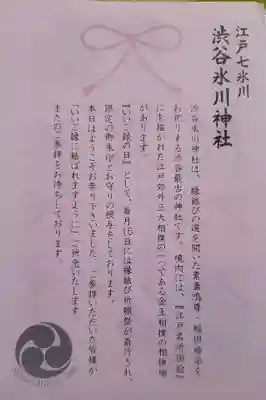 江戸七氷川
渋谷氷川神社
渋谷氷川神社は、縁結びの道を開いた素盞鳴尊・稲田姫命を
お祀りする渋谷最古の神社です。境内には、『江戸名所図絵』
にも描かれた江戸郊外三大相撲の一つである金王相撲の相撲場
があります。
『いい縁の日』として、毎月15日には縁結び祈願祭が斎行され、
限定の御朱印とお守りの授与をしております。
本日はようこそお参り下さいました。ご参拝いただいた皆様が
「いいご縁に結ばれますように」とご祈念いたします
またのご参拝をお待ちしております。